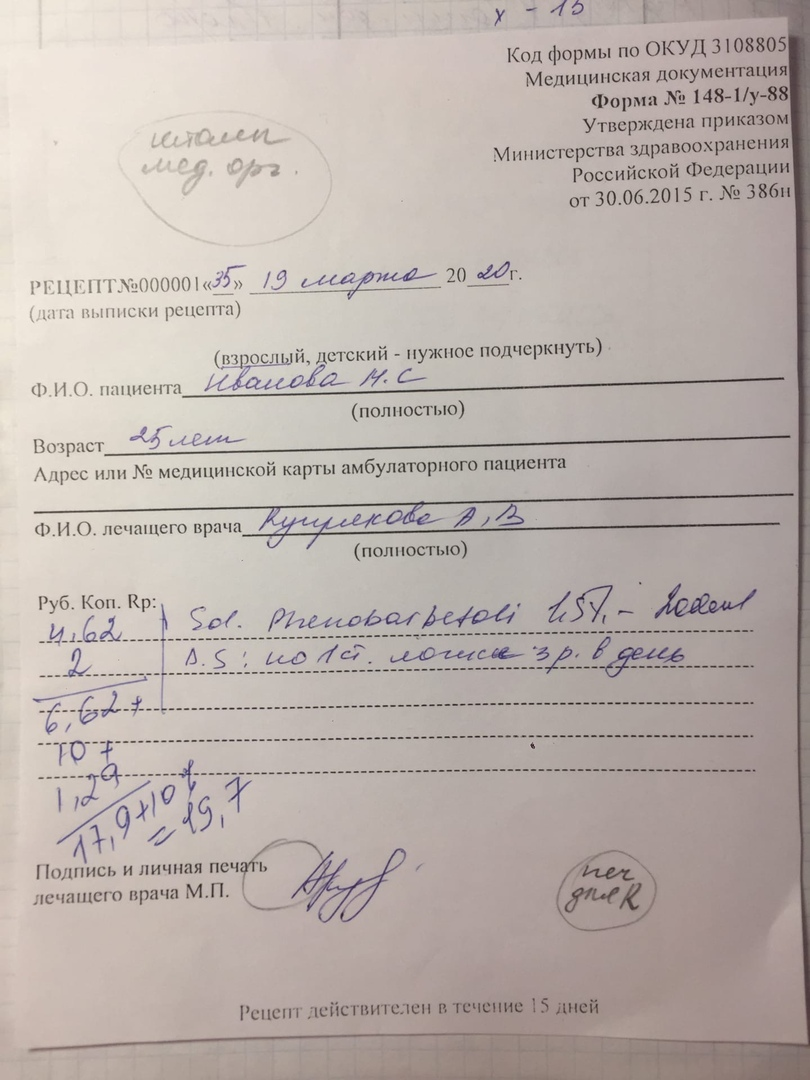 х - 15
Код формы по ОКУД 3108805
Медицинская документация
Форма № 148-1/у-88
Утверждена приказом
Министерства здравоохранения
Российской Федерации
от 30.06.2015 г. № 386н
штамп
мед. орг.
РЕЦЕПТ№000001«35» 19 марта 20 20г.
(дата выписки рецепта)
(взрослый, детский - нужное подчеркнуть)
Ф.И.О. пациента Иванова М.С
(полностью)
Возраст 25 лет
Адрес или № медицинской карты амбулаторного пациента
Ф.И.О. лечащего врача А,В
(полностью)
Руб. Коп. Rp:
4,62 Sol. Phenobarbetoli 1,5%. - 200ml
2 D.S: по 1 ст. ложке 3 р. в день
6,62 +
10 +
1,29
17,9+10%
= 19,7
Подпись и личная печать
лечащего врача М.П.
печ
для R
Рецепт действителен в течение 15 дней